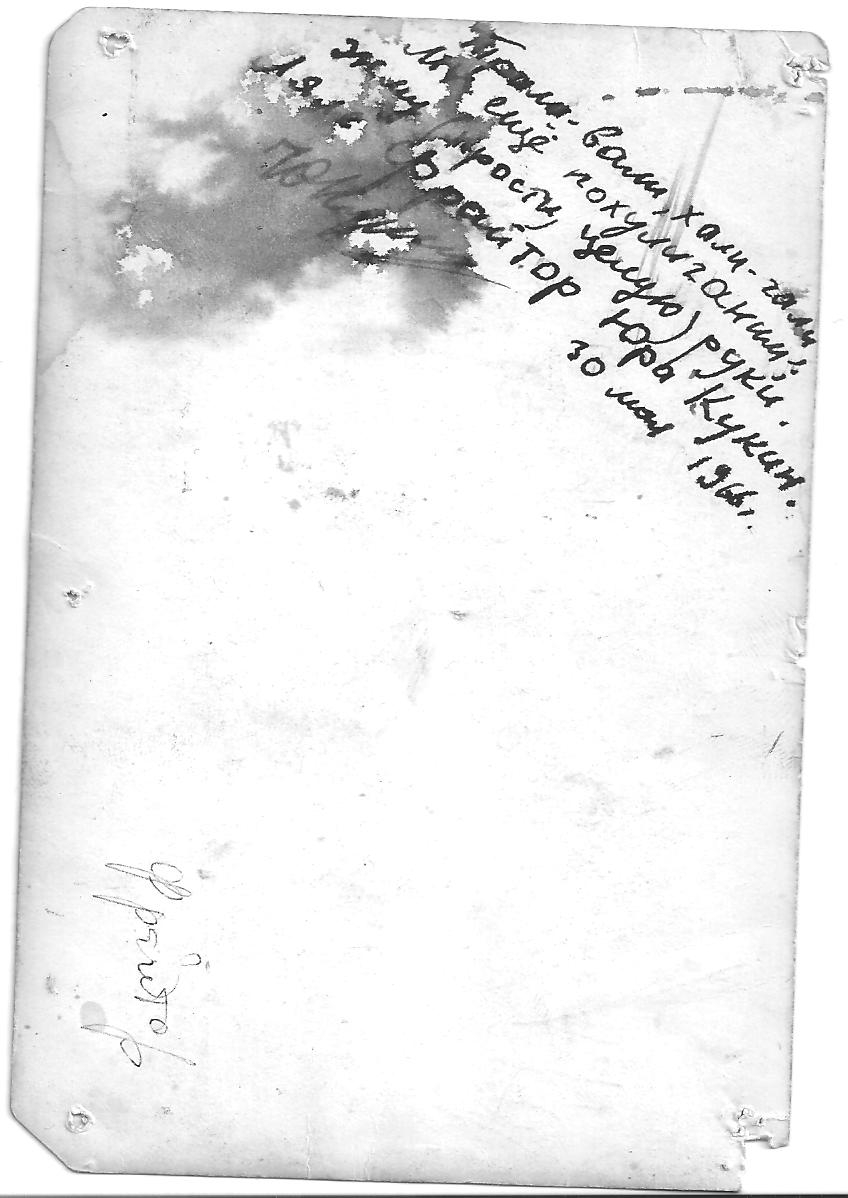 Трали-вали, хали-гали,
Мы ещё похулиганим!
Жму (прости, целую) руки.
Ляля Фрайтор Юра Кукин.
30 мая 1966г.
Фрайтор